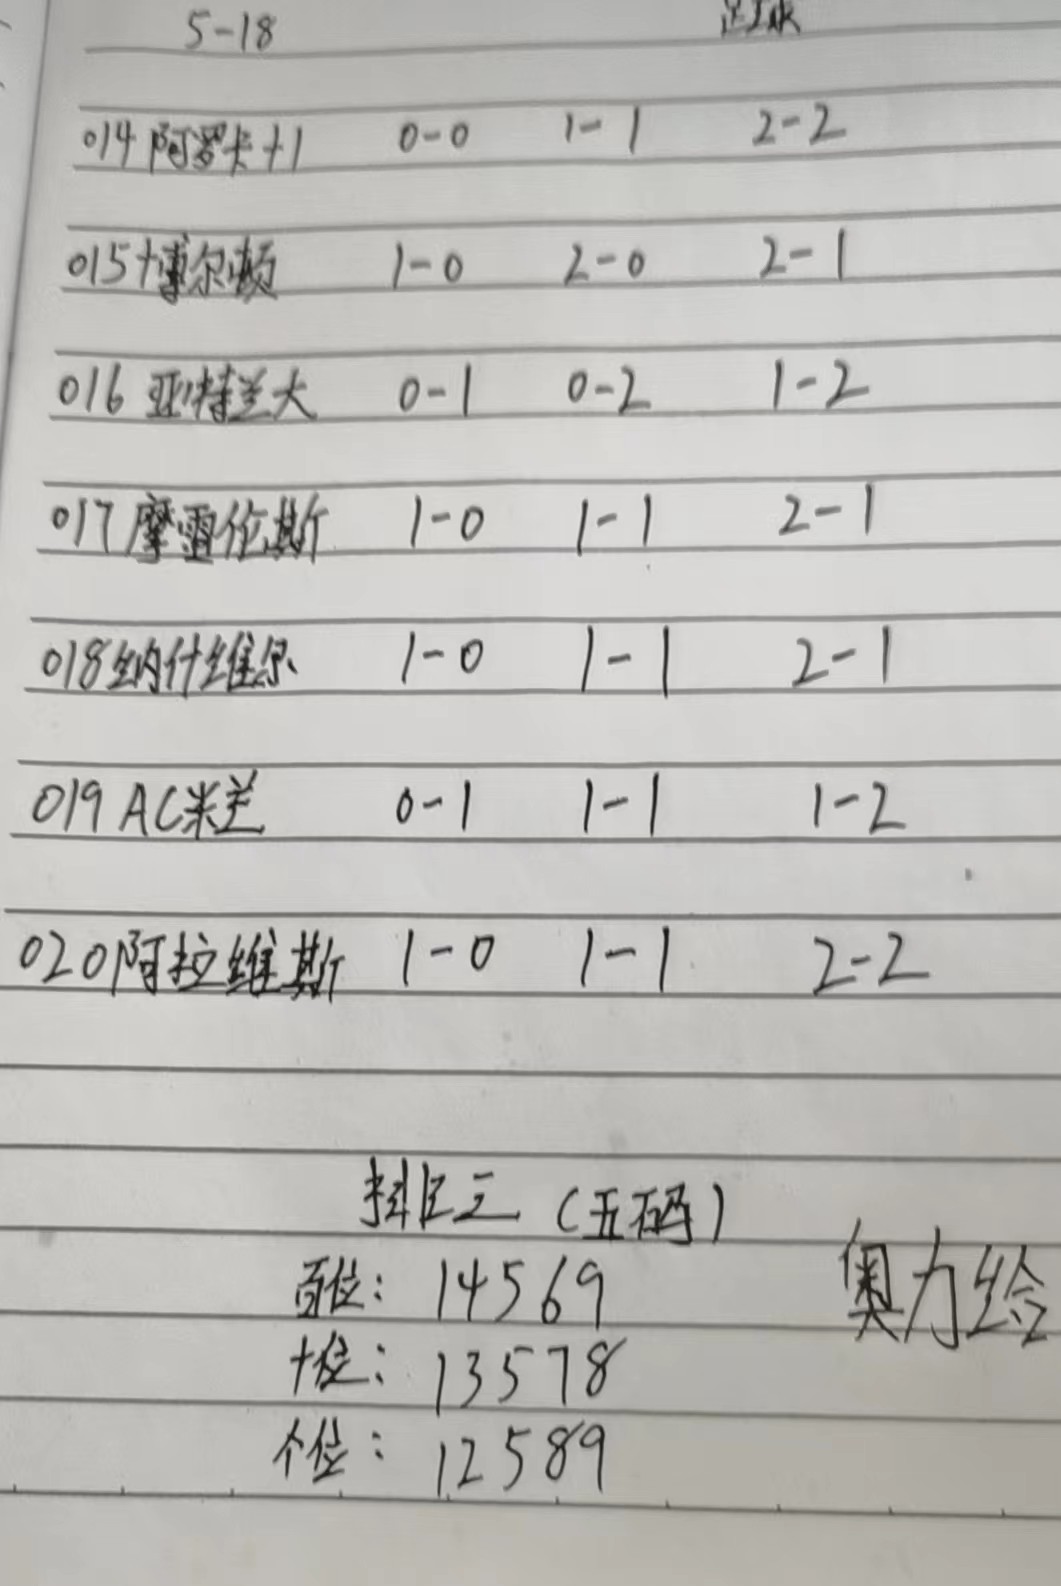 5-18 足球
014 阿罗卡+1 0-0 1-1 2-2
015+博尔顿 1-0 2-0 2-1
016 亚特兰大 0-1 0-2 1-2
017 摩雷伦斯 1-0 1-1 2-1
018 纳什维尔 1-0 1-1 2-1
019 AC米兰 0-1 1-1 1-2
020 阿拉维斯 1-0 1-1 2-2
排三（五码）
百位：14569
奥力给
十位：13578
个位：12589